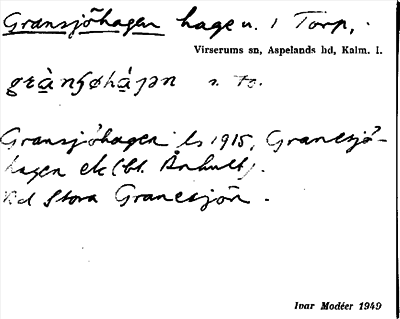 Gransjöhagen hage u. 1 Torp,
Virserums sn, Aspelands hd, Kalm. l.
Gransjöhagen Ls 1915, Granesjö-
hagen ek (bl. Ånhult).
Vid Stora Granesjön.
Ivar Modéer 1949